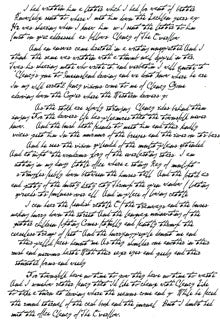 I had written him a letter which I had for want of better
Knowledge sent to where I met him down the Lachlan years ago
He was shearing when I knew him so I sent the letter to him
Just on spec addressed as follows Clancy of The Overflow
And an answer came directed in a writing unexpected And I
think the same was written with a thumb nail dipped in tar
Twas his shearing mate who wrote it and verbatim I will quote it
Clancy's gone to Queensland droving and we dont know where he are
In my wild erratic fancy visions come to me of Clancy Gone
a droving down the Cooper where the Western drovers go
As the stock are slowly stringing Clancy rides behind them
singing For the drovers life has pleasures that the townsfolk never
know. And the bush hath friends to meet him and their kindly
voices greet him in the murmur of the breezes and the river on its bars
And he sees the vision splendid of the sunlit plains extended
And at night the wondrous glory of the everlasting stars. I am
sitting in my dingy little office where a stingy Ray of sunlight
struggles feebly down between the houses tall And the foetid air
and gritty of the dusty dirty city Through the open window floating
spreads its foulness over all And in place of lowing cattle
I can hear the fiendish rattle Of the tramways and the buses
making hurry down the street And the language uninviting of the
gutter children fighting Comes fitfully and faintly through the
ceaseless tramp of feet And the hurrying people daunt me and
their pallid faces haunt me As they shoulder one another in their
rush and nervous haste With their eager eyes and greedy and their
stunted forms and weedy
For townsfolk have no time to grow they have no time to waste
And I somehow rather fancy that I'd like to change with Clancy Like
to take a turn at droving where the seasons come and go While he faced
the round eternal of the cash book and the journal But I doubt he'd
suit the office Clancy of The Overflow.